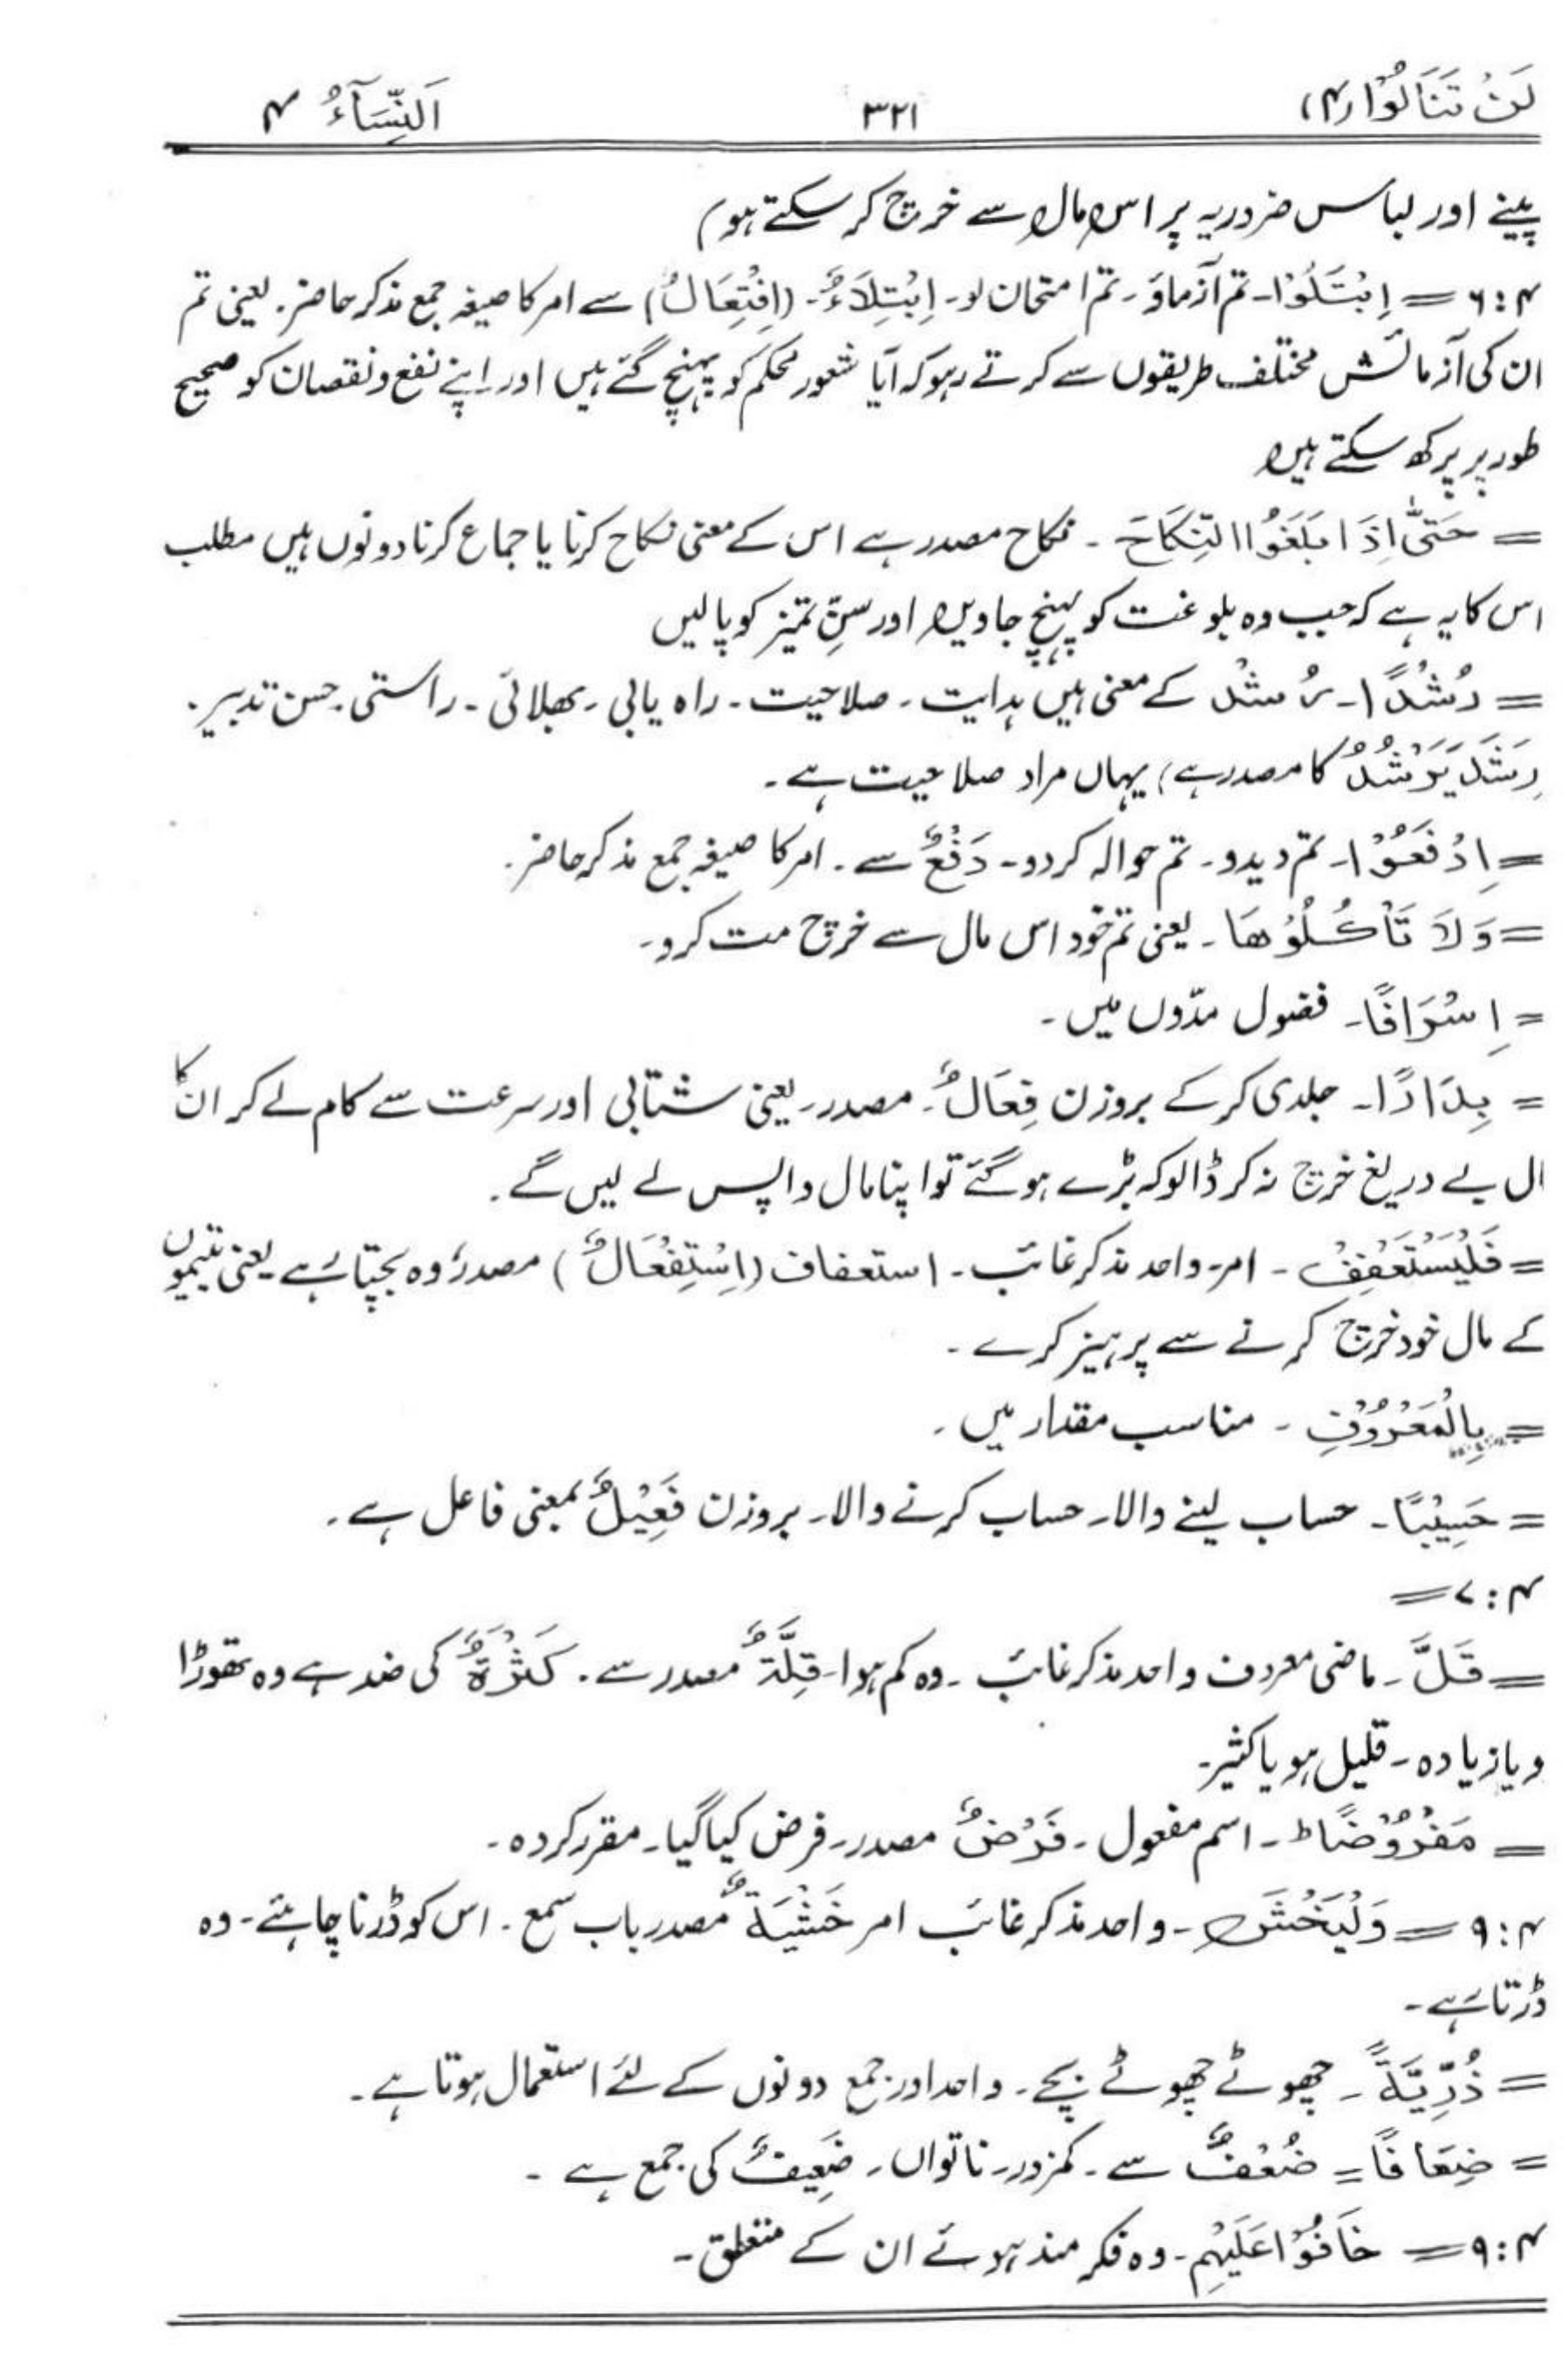 لَنْ تَنَالُوْا (۴) ۳۲۱ اَلنِّسَآءُ ۴
پینے اور لباس ضروریہ پر اس مال سے خرچ کر سکتے ہو)
۶:۴ = اِبْتَلُوْا۔ تم آزماؤ۔ تم امتحان لو۔ اِبْتِلَاءٌ۔ (اِفْتِعَالٌ) سے امر کا صیغہ جمع مذکر حاضر۔ یعنی تم
ان کی آزمائش مختلف طریقوں سے کرتے رہو کہ آیا شعور محکم کو پہنچ گئے ہیں اور اپنے نفع و نقصان کو صحیح
طور پر پرکھ سکتے ہیں
= حَتّٰی اِذَا بَلَغُوا النِّكَاحَ ۔ نکاح مصدر ہے اس کے معنی نکاح کرنا یا جماع کرنا دونوں ہیں مطلب
اس کا یہ ہے کہ جب وہ بلوغت کو پہنچ جاویں اور سنِّ تمیز کو پالیں
= رُشْدًا۔ رُشْد کے معنی ہیں ہدایت۔ صلاحیت۔ راہ یابی۔ بھلائی۔ راستی۔ حسن تدبیر۔
رَشَدَ یَرْشُدُ کا مصدر ہے) یہاں مراد صلاحیت ہے۔
= اِدْفَعُوْا۔ تم دیدو۔ تم حوالہ کردو۔ دَفْعٌ سے۔ امر کا صیغہ جمع مذکر حاضر۔
= وَلَا تَأْكُلُوْهَا۔ یعنی تم خود اس مال سے خرچ مت کرو۔
= اِسْرَافًا۔ فضول مدّوں میں۔
= بِدَارًا۔ جلدی کر کے بروزن فِعَالٌ۔ مصدر۔ یعنی شتابی اور سرعت سے کام لے کر ان کا
ال بے دریغ خرچ نہ کر ڈالو کہ بڑے ہو گئے تو اپنا مال واپس لے لیں گے۔
= فَلْیَسْتَعْفِفْ ۔ امر۔ واحد مذکر غائب۔ استعفاف (اِسْتِفْعَالٌ) مصدر۔ وہ بچتا ہے یعنی یتیموں
کے مال خود خرچ کرنے سے پرہیز کرے۔
= بِالْمَعْرُوْفِ ۔ مناسب مقدار میں۔
= حَسِیْبًا۔ حساب لینے والا۔ حساب کرنے والا۔ بروزن فَعِیْلٌ بمعنی فاعل ہے۔
۷:۴ =
= قَلَّ۔ ماضی معروف واحد مذکر غائب۔ وہ کم ہوا۔ قِلَّةٌ مصدر سے۔ کَثْرَةٌ کی ضد ہے وہ تھوڑا
و یا زیادہ۔ قلیل ہو یا کثیر۔
= مَفْرُوْضًا ط۔ اسم مفعول۔ فَرْضٌ مصدر۔ فرض کیا گیا۔ مقرر کردہ۔
۹:۴ = وَلْیَخْشَ۔ واحد مذکر غائب امر خَشْیَةٌ مصدر باب سمع۔ اس کو ڈرنا چاہئے۔ وہ
ڈرتا ہے۔
= ذُرِّیَّةً۔ چھوٹے چھوٹے بچے۔ واحد اور جمع دونوں کے لئے استعمال ہوتا ہے۔
= ضِعَافًا = ضُعْفٌ سے۔ کمزور۔ ناتواں۔ ضَعِیفٌ کی جمع ہے ۔
۹:۴ = خَافُوْا عَلَیْهِمْ۔ وہ فکر مند ہوئے ان کے متعلق۔